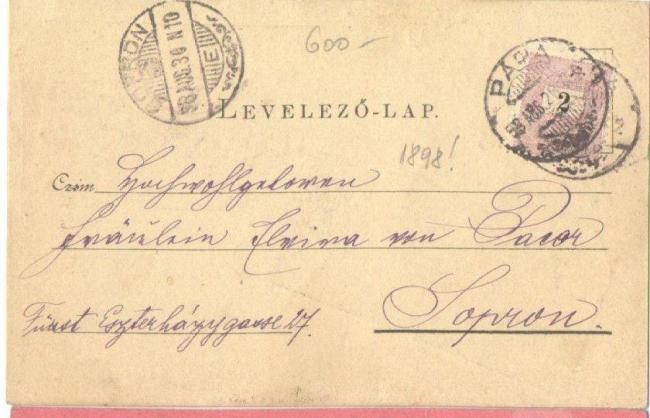 SOPRON
98 AUG. 30 N10
E
600-
PÁPA
98 AUG. 2
2
LEVELEZŐ-LAP.
1898!
Czím Hochwohlgeboren
Fräulein Elvira von Pacor
Fürst Eszterházygasse 27. Sopron.